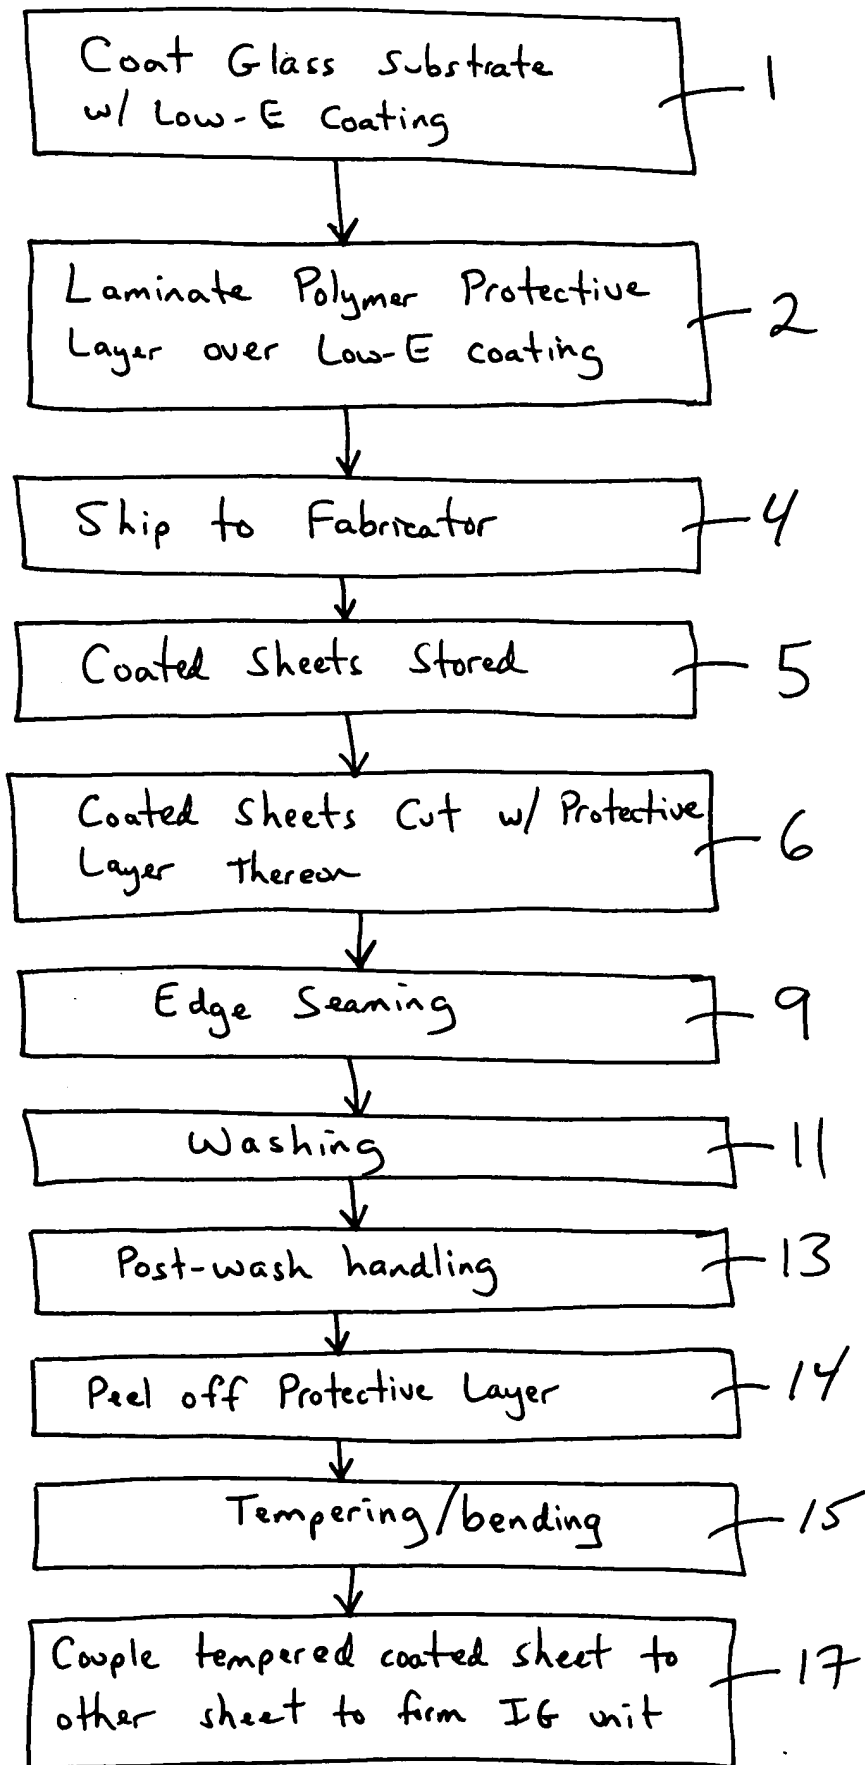 Coat Glass Substrate
w/ Low-E Coating
1
Laminate Polymer Protective
Layer over Low-E coating
2
Ship to Fabricator
4
Coated Sheets Stored
5
Coated Sheets Cut w/ Protective
Layer Thereon
6
Edge Seaming
9
Washing
11
Post-wash handling
13
Peel off Protective Layer
14
Tempering/bending
15
Couple tempered coated sheet to
other sheet to form IG unit
17